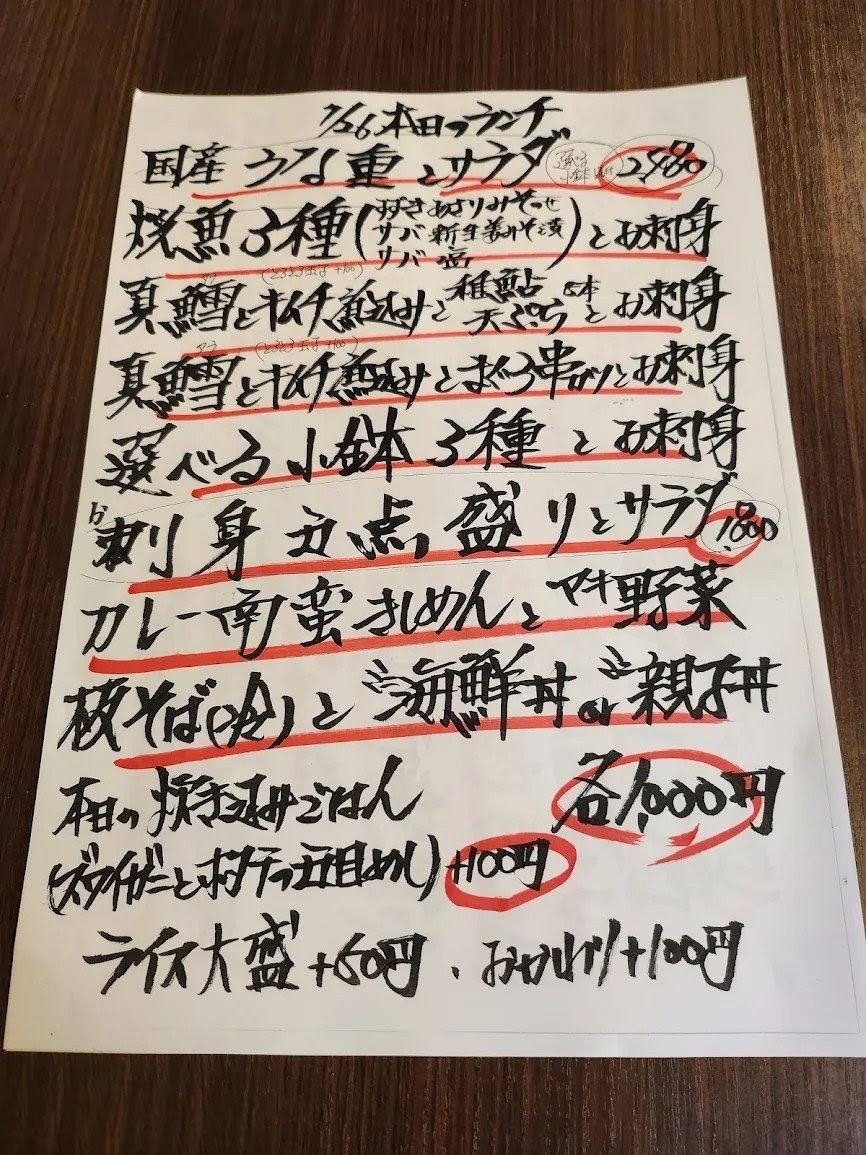 7/26 本日のランチ
国産 うな重とサラダ 選べる小鉢 2,480
焼魚3種(サバ 新生姜みそ漬 サバ塩)とお刺身
真鱈とキムチ煮込みと稚鮎天ぷら5本とお刺身
タラ (とろとろ玉子+100)
真鱈とキムチ煮込みとまぐろ串カツとお刺身
タラ (とろとろ玉子+100)
選べる小鉢3種とお刺身
お刺身五点盛りとサラダ 1,800
カレー南蛮きしめんとマキ野菜
板そば(冷)とミニ海鮮丼orミニ親子丼
各1,000円
本日の炊き込みごはん
(ズワイガニとホタテの五目めし)+100円
ライス大盛+50円、おかわり+100円